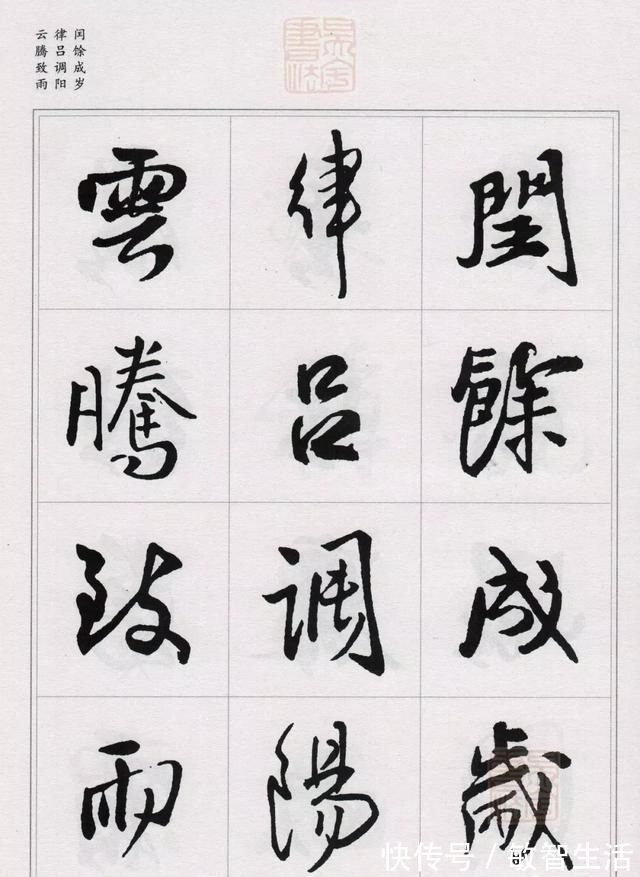 闰馀成岁
律吕调阳
云腾致雨
閏餘成歲
律吕調陽
雲騰致雨
快传号／敏智生活